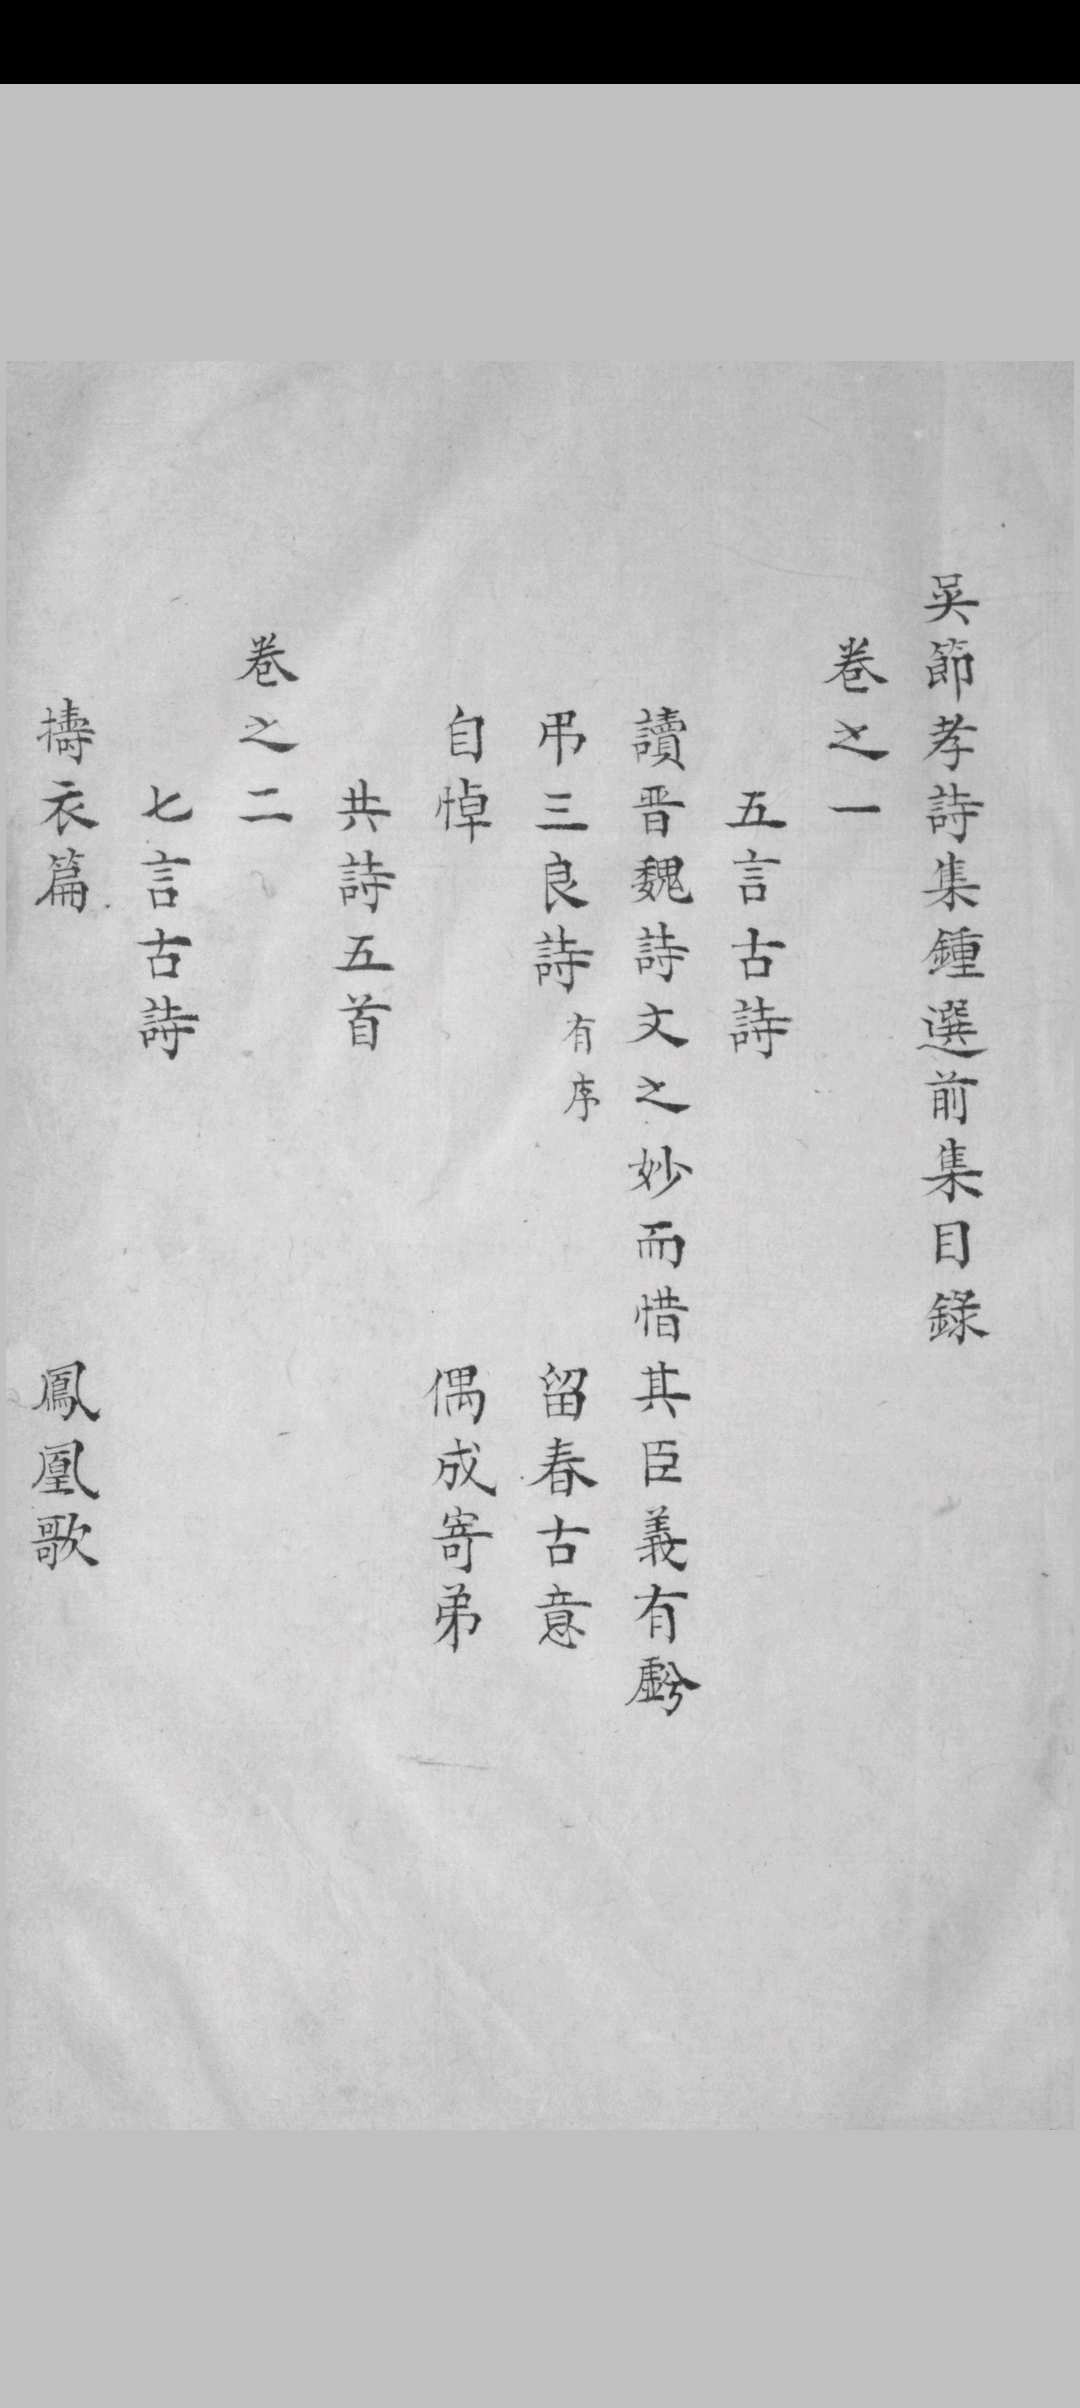 吳節孝詩集鍾選前集目錄
卷之一
五言古詩
讀晋魏詩文之妙而惜其臣義有虧
弔三良詩有序 留春古意
自悼 偶成寄弟
共詩五首
卷之二
七言古詩
擣衣篇 鳳凰歌